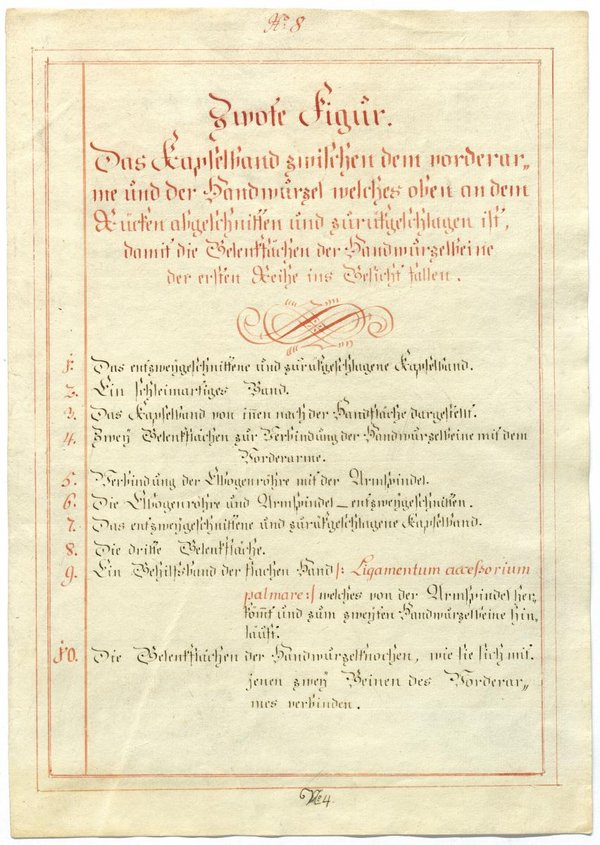 No. 8
Zwote Figur.
Das Kapselband zwischen dem vorderar„
me und der Handwurzel welches oben an dem
Rücken abgeschnitten und zurükgeschlagen ist,
damit die Gelenkflächen der Handwurzelbeine
der ersten Reihe ins Gesicht fallen.
1. Das entzweygeschnittene und zurükgeschlagene Kapselband.
2. Ein schleimartiges Band.
3. Das Kapselband von iñen nach der Handfläche dargestelt.
4. Zwey Gelenkflächen zur Verbindung der Handwurzelbeine mit dem
Vorderarme.
5. Verbindung der Elbogenröhre mit der Armspindel.
6. Die Elbogenröhre und Armspindel entzweygeschnitten.
7. Das entzweygeschnittene und zurükgeschlagene Kapselband.
8. Die dritte Gelenkfläche.
9. Ein Behilfsband der flachen Hand /: Ligamentum accessorium
palmare :/ welches von der Armspindel her„
kom̃t und zum zweyten Handwurzelbeine hin„
läuft.
10. Die Gelenkflächen der Handwurzelknochen, wie sie sich mit
jenen zwey Beinen des Vorderar„
mes verbinden.
No. 4.